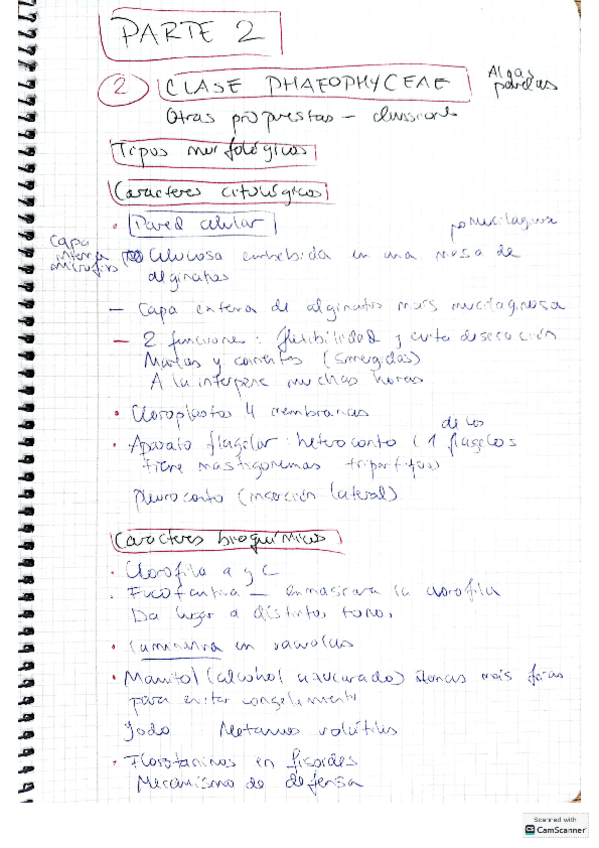 PARTE 2
2 CLASE PHAEOPHYCEAE Algas pardas
Otras propuestas - divisiones
Tipos morfológicos
Caracteres citológicos
· Pared celular
Capa interna
Glucosa embebida en una masa de
alginatos
- Capa externa de alginatos más mucilaginosa
- 2 funciones: flexibilidad y evita desecación
Mareas y corrientes (sumergidas)
A la intemperie muchas horas
· Cloroplastos 4 membranas
· Aparato flagelar: heteroconto (1 de los flagelos
tiene mastigonemas tripartitos)
Pleuroconto (inserción lateral)
Caracteres bioquímicos
· Clorofila a y c
· Fucoxantina - enmascara la clorofila
Da lugar a distintos tonos
· Laminarina en vacuolas
· Manitol (alcohol azucarado) zonas más frías
para evitar congelamiento
Yodo Metanos volátiles
· Florotaninos en fisoides
Mecanismo de defensa
Scanned with
CamScanner